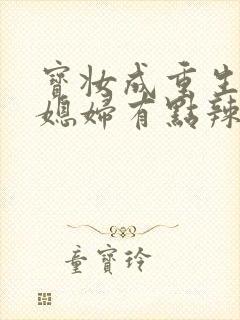 寶妝成重生
媳婦有點辣
童寶玲